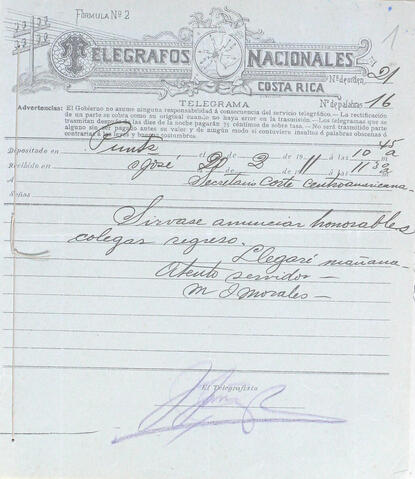 FÓRMULA Nº 2
1
TELEGRAFOS NACIONALES
COSTA RICA
Nº de orden 21
TELEGRAMA
Nº de palabras 16
Advertencias: El Gobierno no asume ninguna responsabilidad á consecuencia del servicio telegráfico. La rectificación
de un parte se cobra como su original cuando no haya error en la trasmisión. Los telegramas que se
trasmitan después de las diez de la noche pagarán 75 céntimos de sobre tasa. No será trasmitido parte
alguno sin ser pagado antes su valor y de ningún modo si contuviere insultos é palabras obscenas ó
contrarias á las leyes y buenas costumbres.
Depositado en Punts á las 10 45 a
Recibido en S José el 20 2 de 1911 á las 11 30 a
A Secretario Corte Centroamericana
Señas
Sírvase anunciar honorables
colegas regreso.
Llegaré mañana
Atento servidor
M J Morales
El Telegrafista